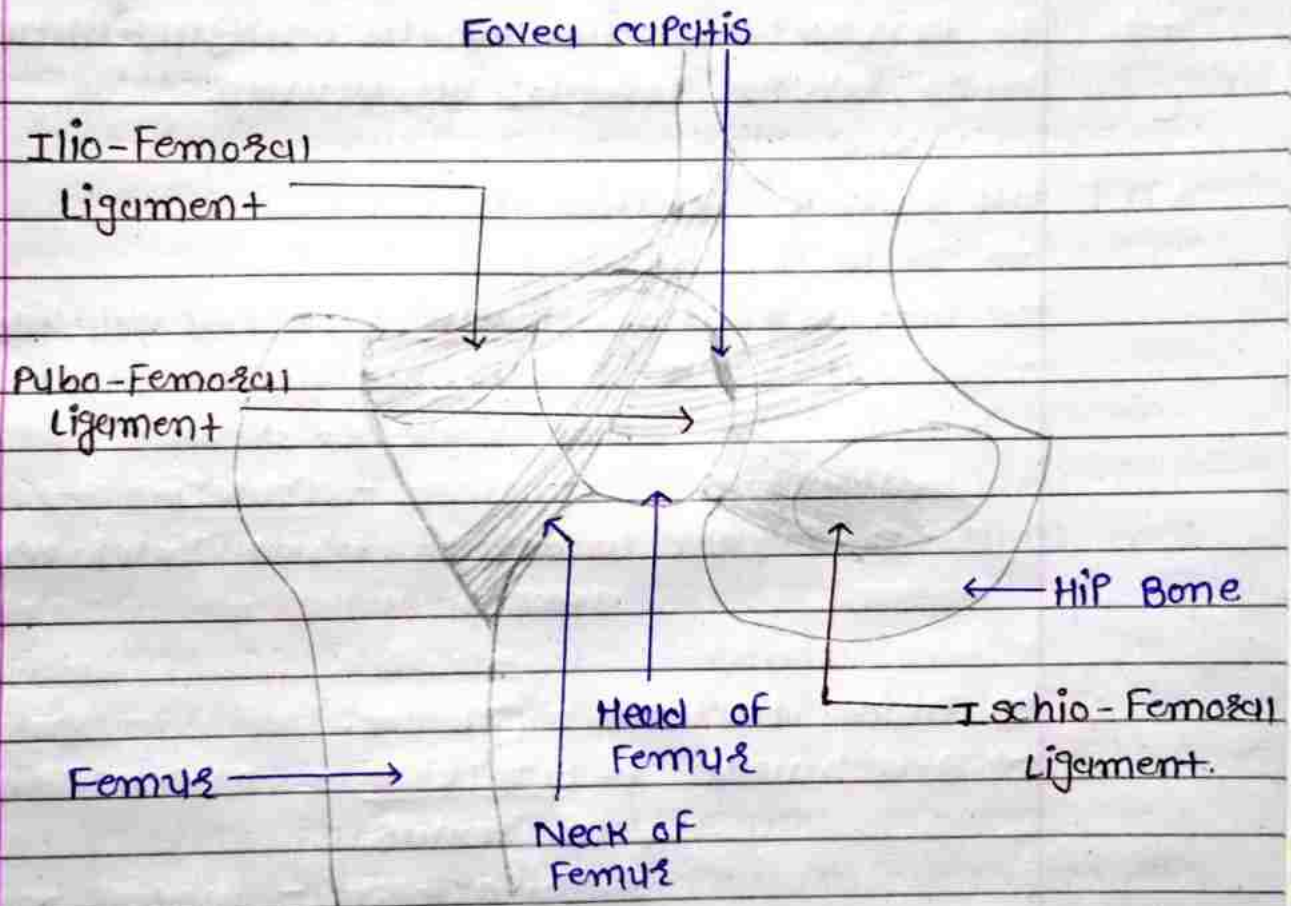 Fovea capatis
Ilio-Femoral
Ligament
Pubo-Femoral
Ligement
Hip Bone
Head of
Femur
Ischio-Femoral
Ligament.
Femur
Neck of
Femur